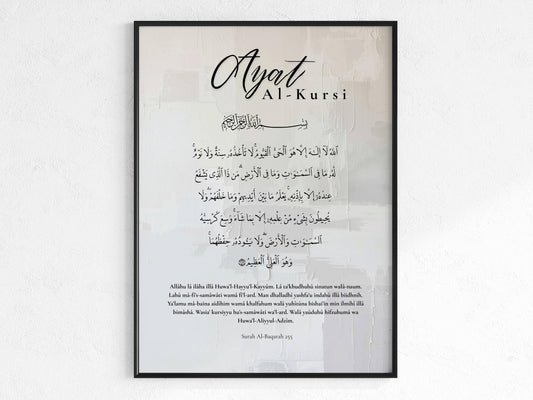 Ayat
Al-Kursi
بِسْمِ اللَّهِ الرَّحْمَٰنِ الرَّحِيمِ
ٱللَّهُ لَآ إِلَٰهَ إِلَّا هُوَ ٱلْحَىُّ ٱلْقَيُّومُ ۚ لَا تَأْخُذُهُۥ سِنَةٌ وَلَا نَوْمٌ ۚ
لَّهُۥ مَا فِى ٱلسَّمَٰوَٰتِ وَمَا فِى ٱلْأَرْضِ ۗ مَن ذَا ٱلَّذِى يَشْفَعُ
عِندَهُۥٓ إِلَّا بِإِذْنِهِۦ ۚ يَعْلَمُ مَا بَيْنَ أَيْدِيهِمْ وَمَا خَلْفَهُمْ ۖ وَلَا
يُحِيطُونَ بِشَىْءٍ مِّنْ عِلْمِهِۦٓ إِلَّا بِمَا شَآءَ ۚ وَسِعَ كُرْسِيُّهُ
ٱلسَّمَٰوَٰتِ وَٱلْأَرْضَ ۖ وَلَا يَـُٔودُهُۥ حِفْظُهُمَا ۚ
وَهُوَ ٱلْعَلِىُّ ٱلْعَظِيمُ
Allâhu lâ ilâha illâ Huwa'l-Hayyu'l-Kayyûm. Lâ ta'khudhuhû sinatun walâ-naum.
Lahû mâ-fi's-samâwâti wamâ fi'l-ard. Man dhalladhî yashfa'u indahû illâ biidhnih.
Ya'lamu mâ-baina aidîhim wamâ khalfahum walâ yuhîtûna bishai'in min ilmihî illâ
bimâshâ. Wasia' kursiyyu hu's-samâwâti wa'l-ard. Walâ yaûduhû hifzuhumâ wa
Huwa'l-Aliyyul-Adzim.
Surah Al-Baqarah 255